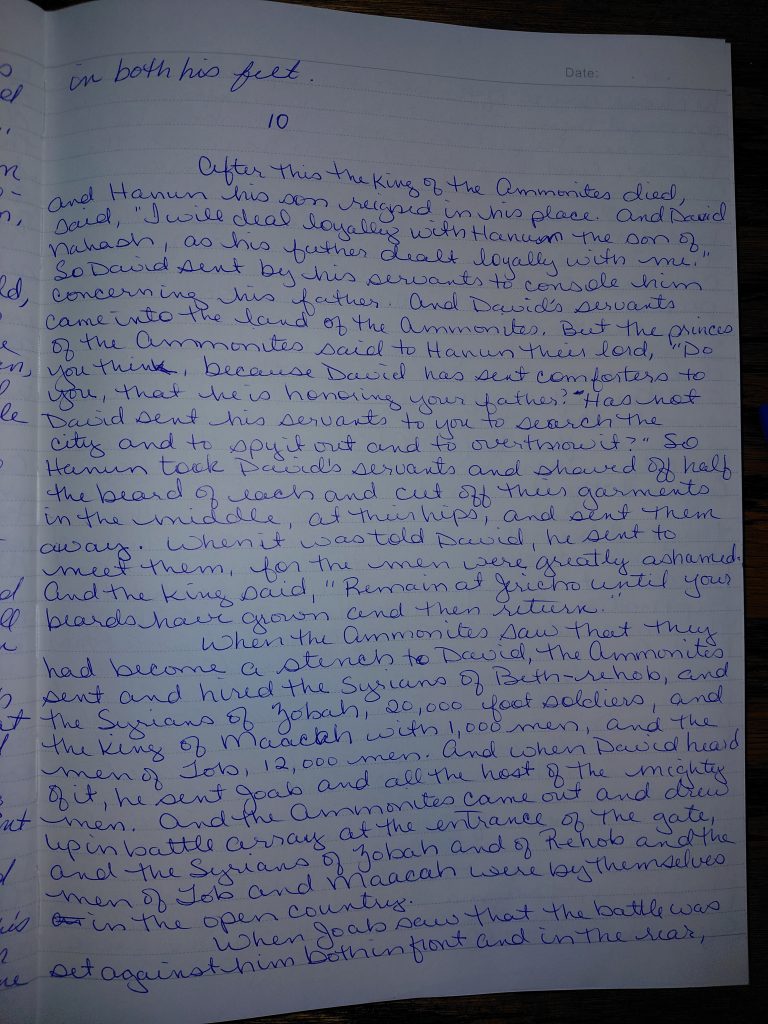 in both his feet.
Date:
10
After this the King of the Ammonites died,
and Hanun his son reigned in his place. And David
said, "I will deal loyally with Hanun the son of
Nahash, as his father dealt loyally with me."
So David sent by his servants to console him
concerning his father. And David's servants
came into the land of the Ammonites. But the princes
of the Ammonites said to Hanun their lord, "Do
you think, because David has sent comforters to
you, that he is honoring your father? Has not
David sent his servants to you to search the
city and to spy it out and to overthrow it?" So
Hanun took David's servants and shaved off half
the beard of each and cut off their garments
in the middle, at their hips, and sent them
away. When it was told David, he sent to
meet them, for the men were greatly ashamed.
And the King said, "Remain at Jericho until your
beards have grown and then return."
When the Ammonites saw that they
had become a stench to David, the Ammonites
sent and hired the Syrians of Beth-rehob, and
the Syrians of Zobah, 20,000 foot soldiers, and
the King of Maacah with 1,000 men, and the
men of Tob, 12,000 men. And when David heard
of it, he sent Joab and all the host of the mighty
men. And the Ammonites came out and drew
up in battle array at the entrance of the gate,
and the Syrians of Zobah and of Rehob and the
men of Tob and Maacah were by themselves
in the open country.
When Joab saw that the battle was
set against him both in front and in the rear,